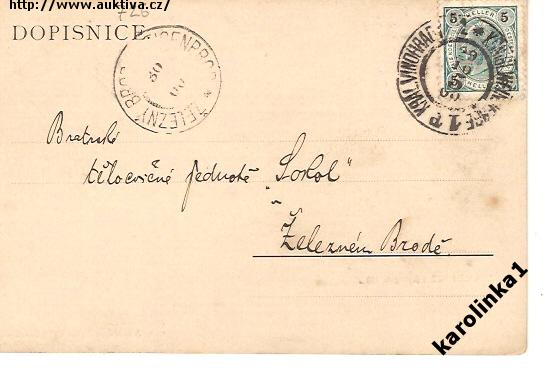 http://www.auktiva.cz/
726
DOPISNICE
EISENBROD * ŽELEZNÝ BROD
30
00
5 5
KRÁL. VINOHRADY 1
29
10
5
00
Bratrské
tělocvičné jednotě „Sokol“
v
Železném Brodě.
karolinka1